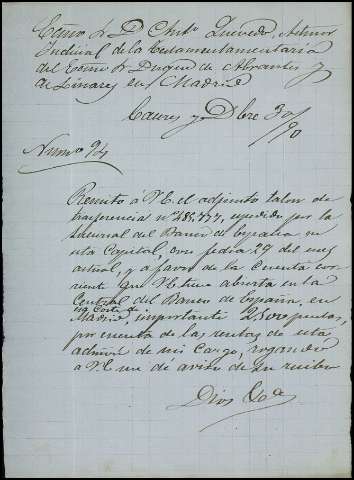 Excmo Sr D. Antº Quevedo, Admor
Judicial de la Testamentamentaria
del Excmo Sr Duque de Abrantes y
de Linares en Madrid
Caceres y Dbre 30/90
Numo 94
Remito á VE. el adjunto talon de
trasferencia nº 485,777, expedido por la
Sucursal del Banco de España en
esta Capital, con fecha 29 del mes
actual, y a favor de la Cuenta cor
riente que VE tiene abierta en la
Central del Banco de España, en
esa Corte de
Madrid, importante 2,500 pesetas,
por cuenta de las rentas de esta
admon de mi cargo, rogando
a VE me de aviso de su recibo
Dios &a